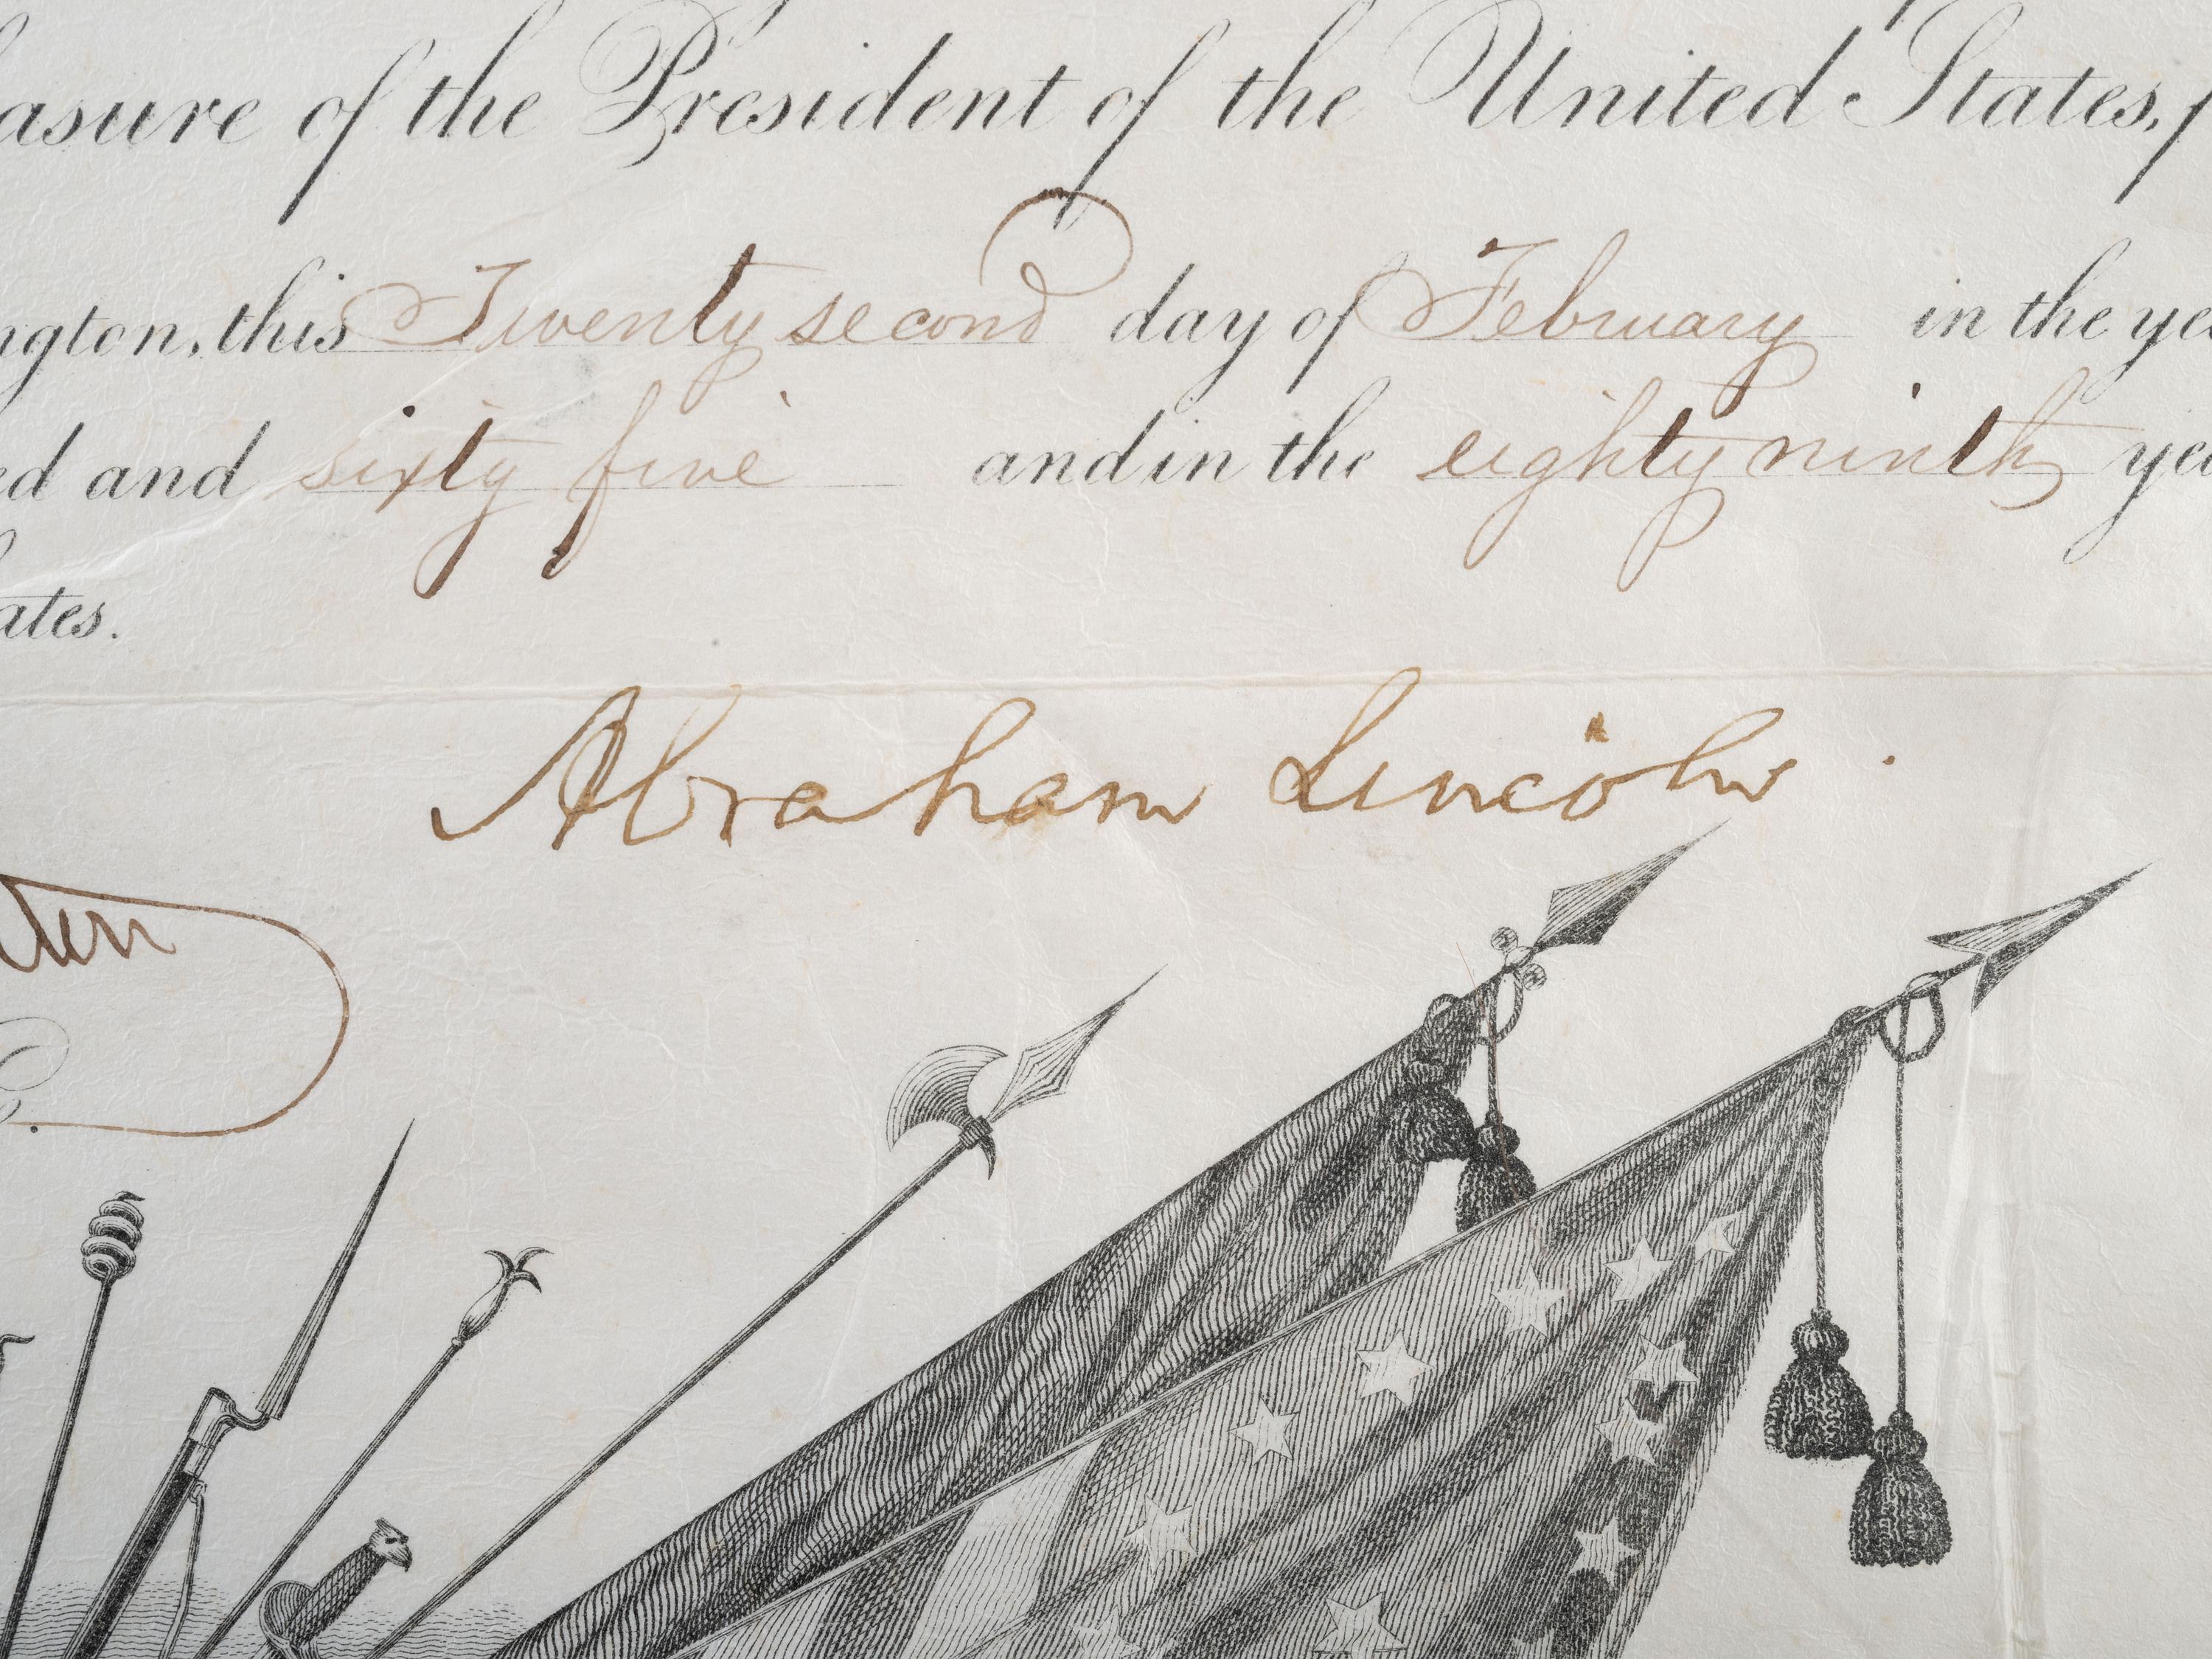 asure of the President of the United States,
ngton, this Twenty second day of February in the ye
ed and sixty five and in the eighty ninth ye
ates.
Abraham Lincoln.